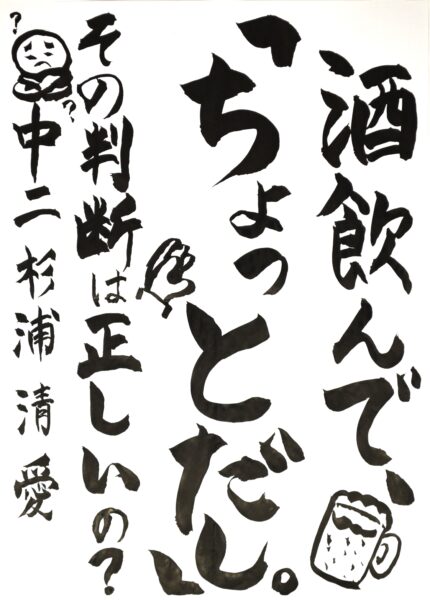 酒飲んで、
「ちょっとだし。」
その判断は正しいの？
中二 杉浦 清愛
? ?